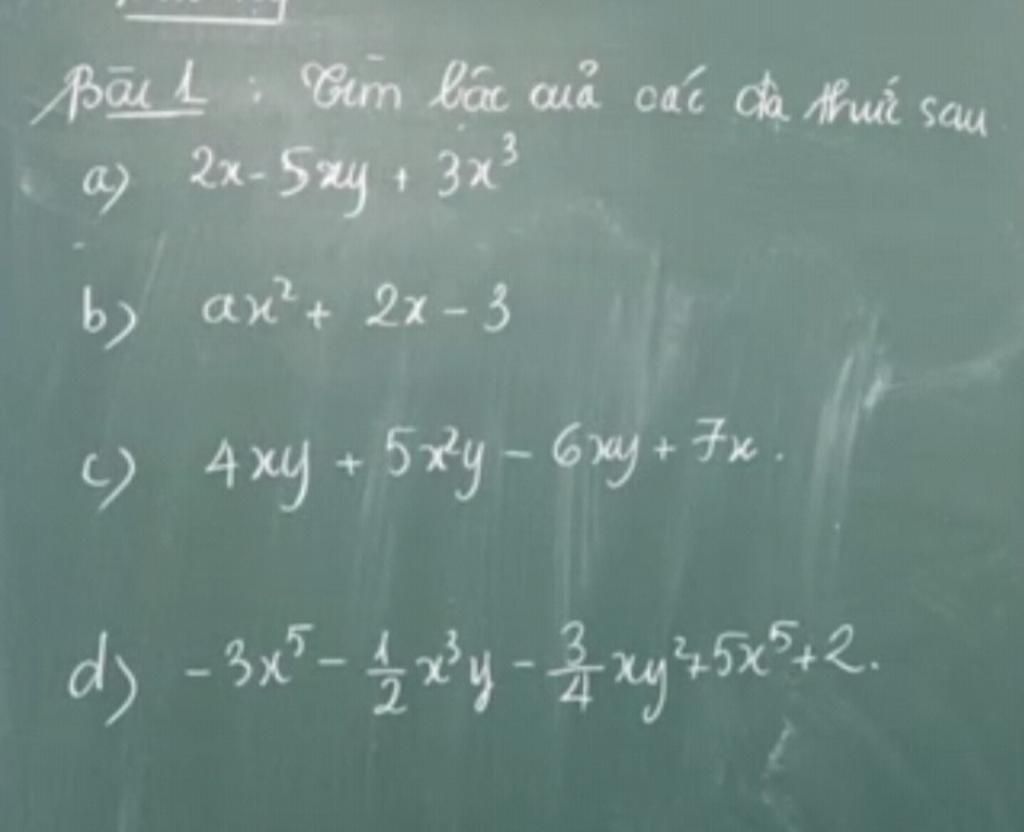 Bài 1 : Tìm bậc của các đa thức sau
a) 2x - 5xy + 3x³
b) ax² + 2x - 3
c) 4xy + 5x²y - 6xy + 7x.
d) -3x⁵ - 1/2 x³y - 3/4 xy² + 5x⁵ + 2.